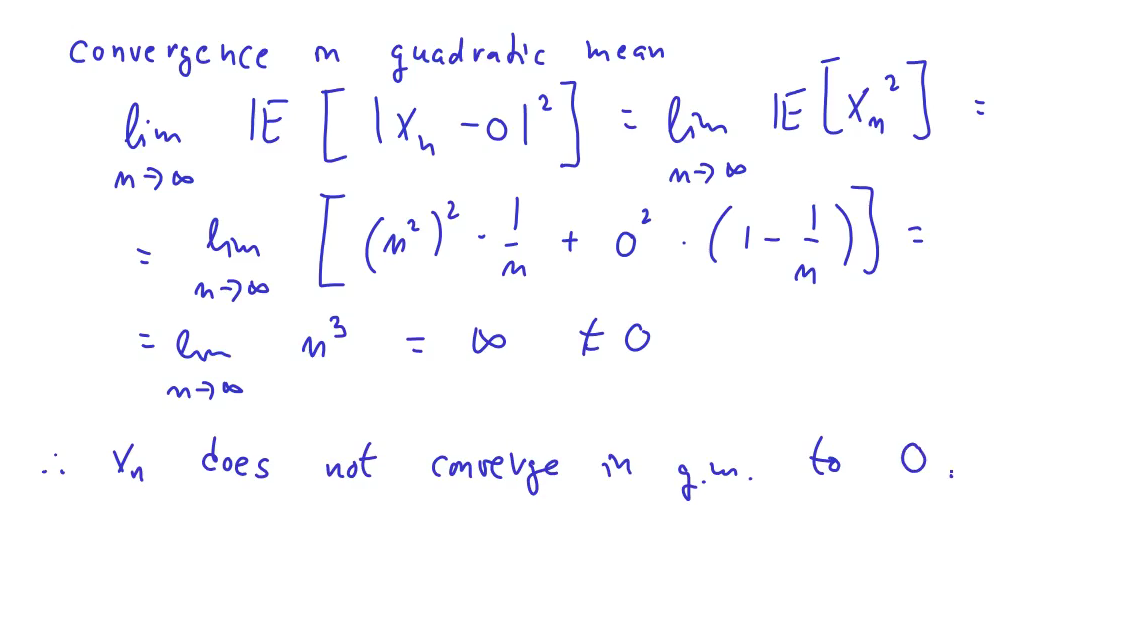 Convergence in quadratic mean
lim n→∞ 𝔼[|Xₙ − 0|²] = lim n→∞ 𝔼[Xₙ²] =
= lim n→∞ [(n²)² · 1/n + 0² · (1 − 1/n)] =
= lim n→∞ n³ = ∞ ≠ 0
∴ Xₙ does not converge in q.m. to 0.